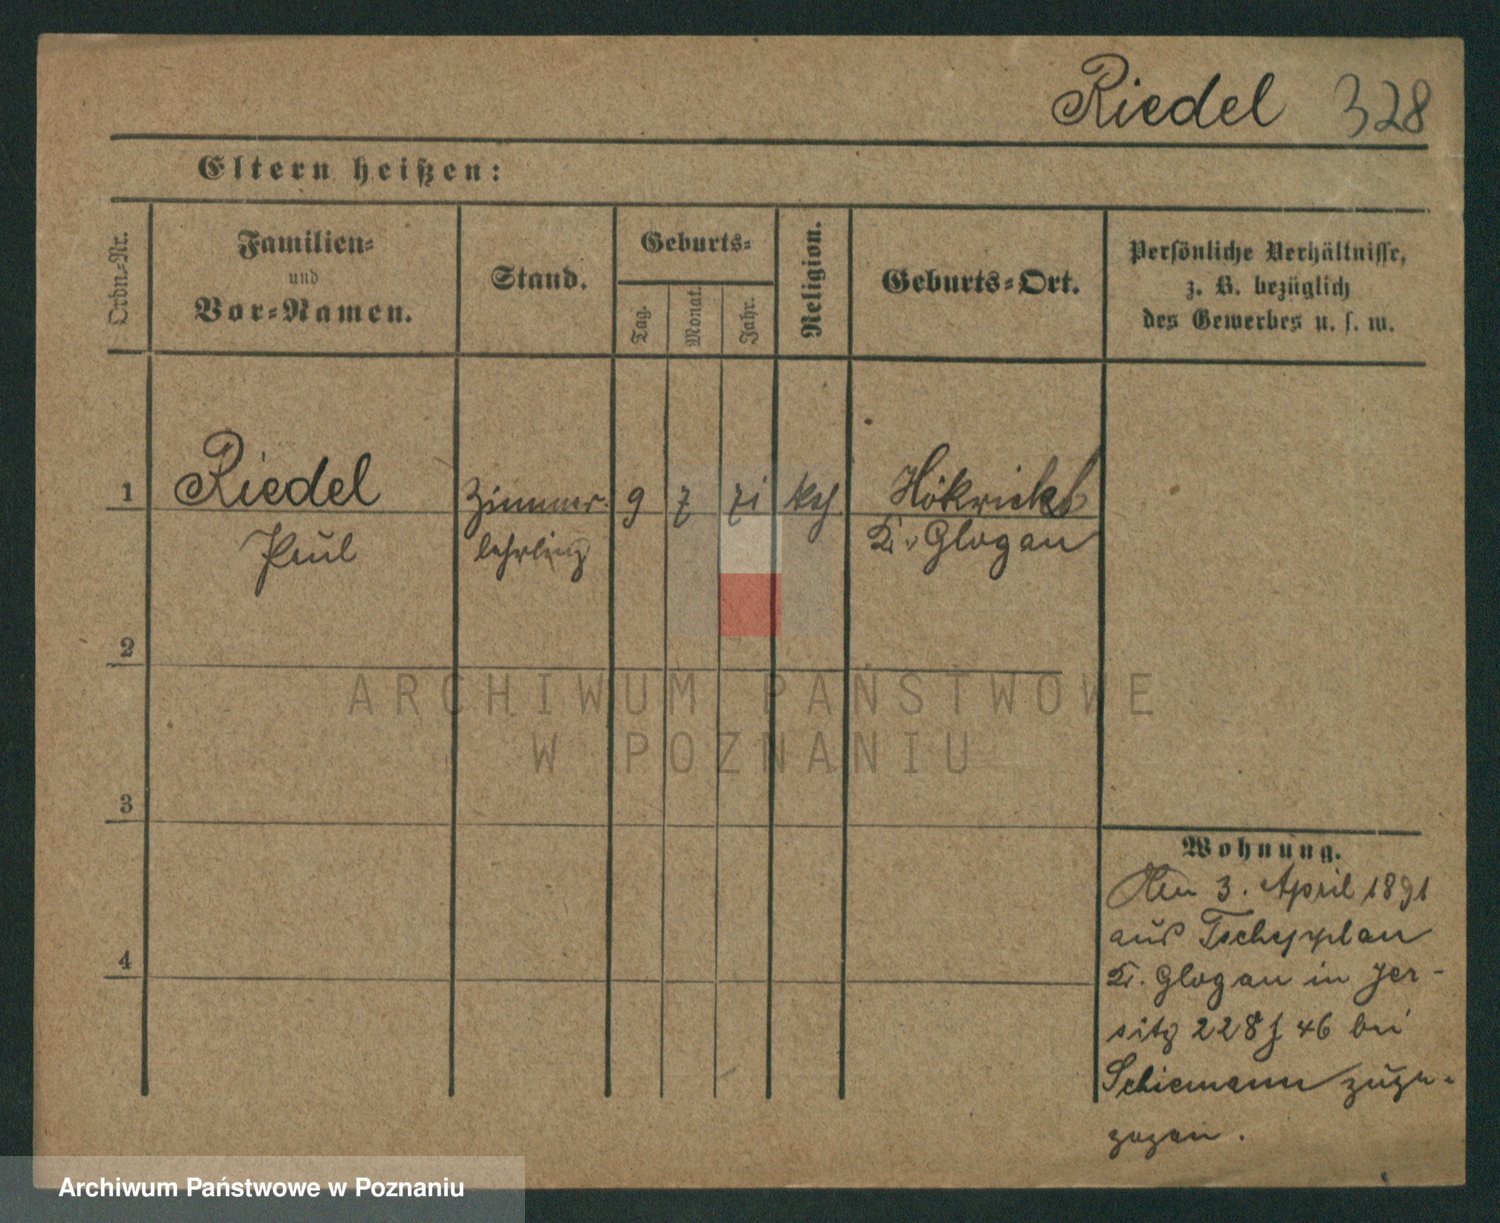 Riedel 328
Eltern heißen:
Ordn.=Nr.
Familien=
und
Vor=Namen.
Stand.
Geburts=
Tag.
Monat.
Jahr.
Religion.
Geburts=Ort.
Persönliche Verhältnisse,
z. B. bezüglich
des Gewerbes u. s. w.
1 Riedel Zimmer- 9 7 71 kth.
Paul lehrling Kr. Glogau
2
3
4
ARCHIWUM PAŃSTWOWE
W POZNANIU
Wohnung.
Am 3. April 1891
aus Tschepplau
Kr. Glogau in Jer-
sitz 228 f 46 bei
Schiemann zuge-
zogen.
Archiwum Państwowe w Poznaniu